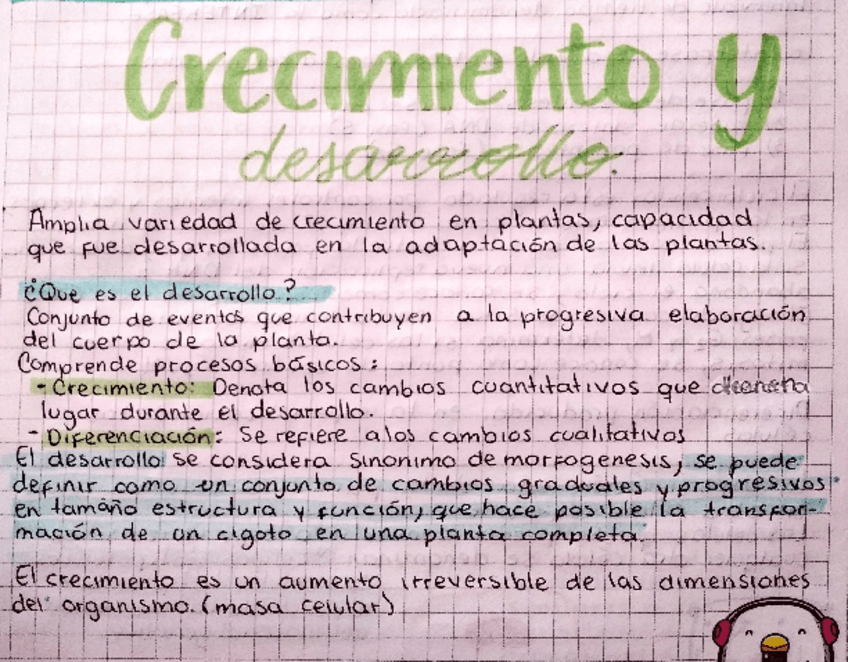 Crecimiento y
desarrollo.
Amplia variedad de crecimiento en plantas, capacidad
que fue desarrollada en la adaptación de las plantas.
¿Que es el desarrollo?
Conjunto de eventos que contribuyen a la progresiva elaboración
del cuerpo de la planta.
Comprende procesos básicos:
- Crecimiento: Denota los cambios cuantitativos que
lugar durante el desarrollo.
- Diferenciación: Se refiere a los cambios cualitativos
El desarrollo se considera sinonimo de morfogenesis, se puede
definir como un conjunto de cambios graduales y progresivos
en tamaño estructura y función, que hace posible la transfor-
mación de un cigoto en una planta completa.
El crecimiento es un aumento irreversible de las dimensiones
del organismo. (masa celular)